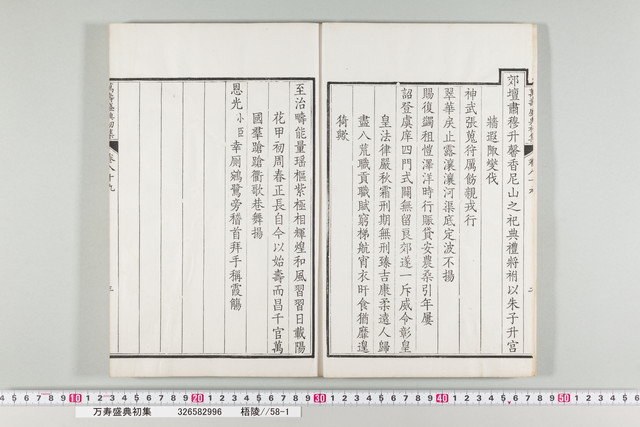 郊壇肅穆升馨香尼山之祀典禮將楶以朱子升宮
牆遐陬變伐
神武張蒐狩厲飭親戎行
翠華戾止露瀼瀼河渠底定波不揚
賜復蠲租愷澤洋時行賑貸安農桑引年屢
詔登虞庠四門式闢無留良郊遂一斥威令彰皇
皇法律嚴秋霜刑期無刑臻吉康柔遠人歸
盡八荒職貢職賦窮梯航宵衣旰食猶靡遑
猗歟
至治疇能量瑤樞紫極相輝煌和風習習日載陽
花甲初周春正長自今以始壽而昌千官萬
國羣蹌蹌衢歌巷舞揚
恩光小臣幸廁鵷鷺旁稽首拜手稱霞觴
萬壽盛典初集
卷八十九
万寿盛典初集 326582996 梧陵//58-1